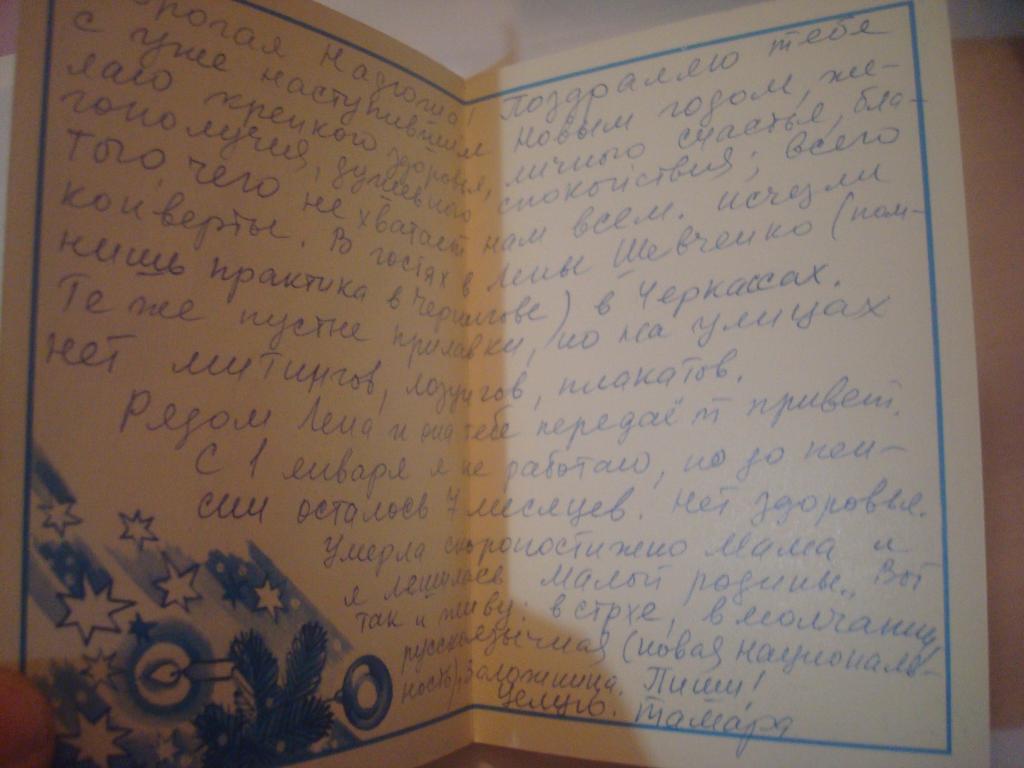 дорогая Надюша! Поздравляю тебя
с уже наступившим Новым годом, же-
лаю крепкого здоровья, личного счастья, бла-
гополучия, душевного спокойствия; всего
того, чего не хватает нам всем. исчезли
конверты. В гостях в Лены Шевченко (пом-
нишь практика в Чернигове) в Черкассах.
Те же пустые прилавки, но на улицах
нет митингов, лозунгов, плакатов.
Рядом Лена и она тебе передаёт привет.
С 1 января я не работаю, но до пен-
сии осталось 7 месяцев. Нет здоровья.
Умерла скоропостижно Мама и
я лишилась малой родины. Вот
так и живу: в стрхе, в молчании
русскоязычная (новая националь-
ность). Заложница. Пиши!
Целую. Тамара